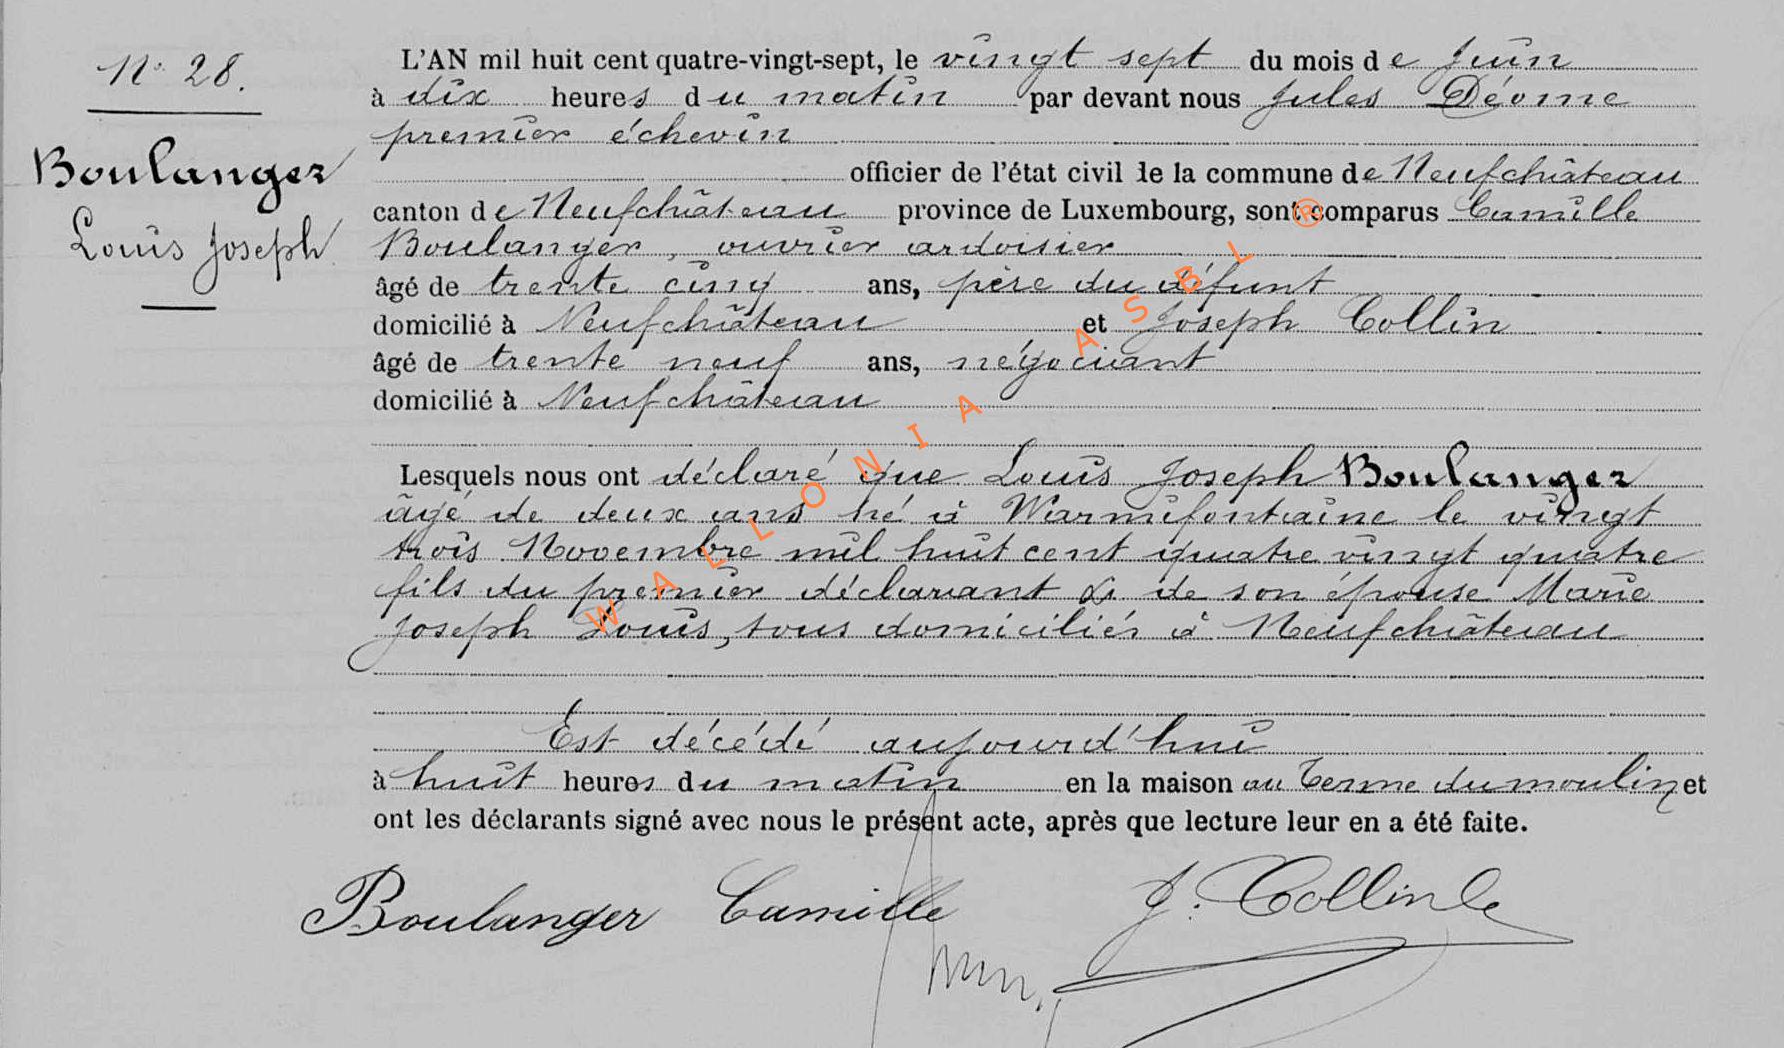 N° 28.
Boulanger
Louis Joseph
L'AN mil huit cent quatre-vingt-sept, le vingt sept du mois de Juin
à dix heures du matin par devant nous Jules Déome
premier échevin
officier de l'état civil de la commune de Neufchâteau
canton de Neufchâteau province de Luxembourg, sont comparus Camille
Boulanger, ouvrier ardoisier
âgé de trente cinq ans, père du défunt
domicilié à Neufchâteau et Joseph Collin
âgé de trente neuf ans, négociant
domicilié à Neufchâteau
Lesquels nous ont déclaré que Louis Joseph Boulanger
âgé de deux ans né à Warmifontaine le vingt
trois Novembre mil huit cent quatre vingt quatre
fils du premier déclarant & de son épouse Marie
Joseph Louis, tous domiciliés à Neufchâteau
Est décédé aujourd'hui
à huit heures du matin en la maison au Terme du moulin et
ont les déclarants signé avec nous le présent acte, après que lecture leur en a été faite.
Boulanger Camille J. Collin
WALLONIA ASBL ®